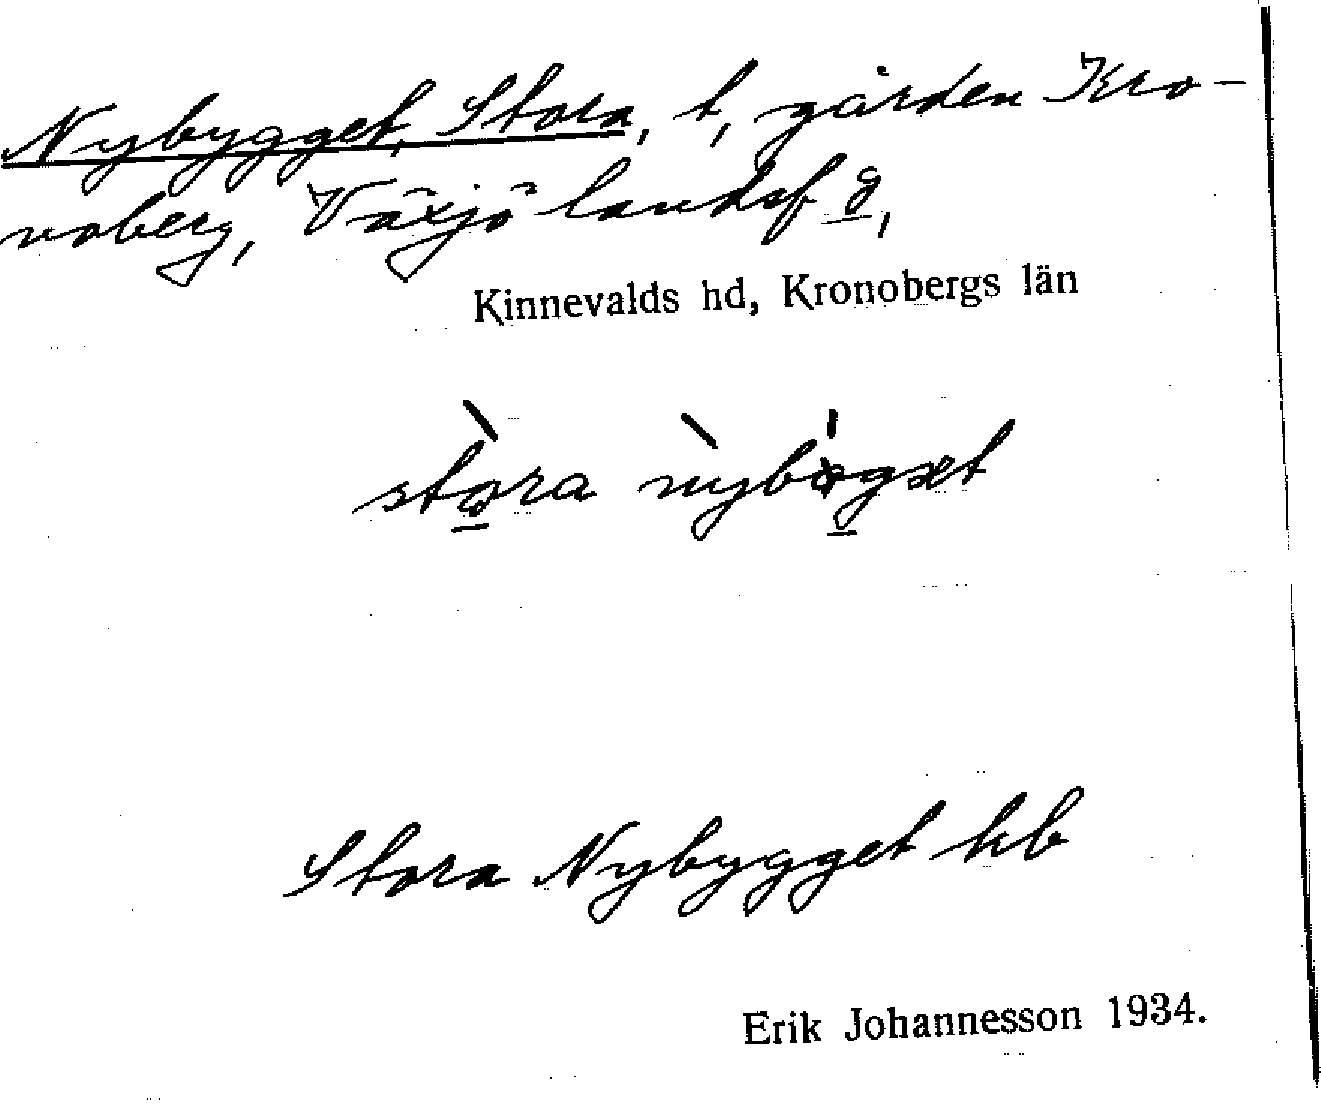 Nybygget, Stora, t, gården Kro-
noberg, Växjö landsf g,
Kinnevalds hd, Kronobergs län
stora
Stora Nybygget hb
Erik Johannesson 1934.